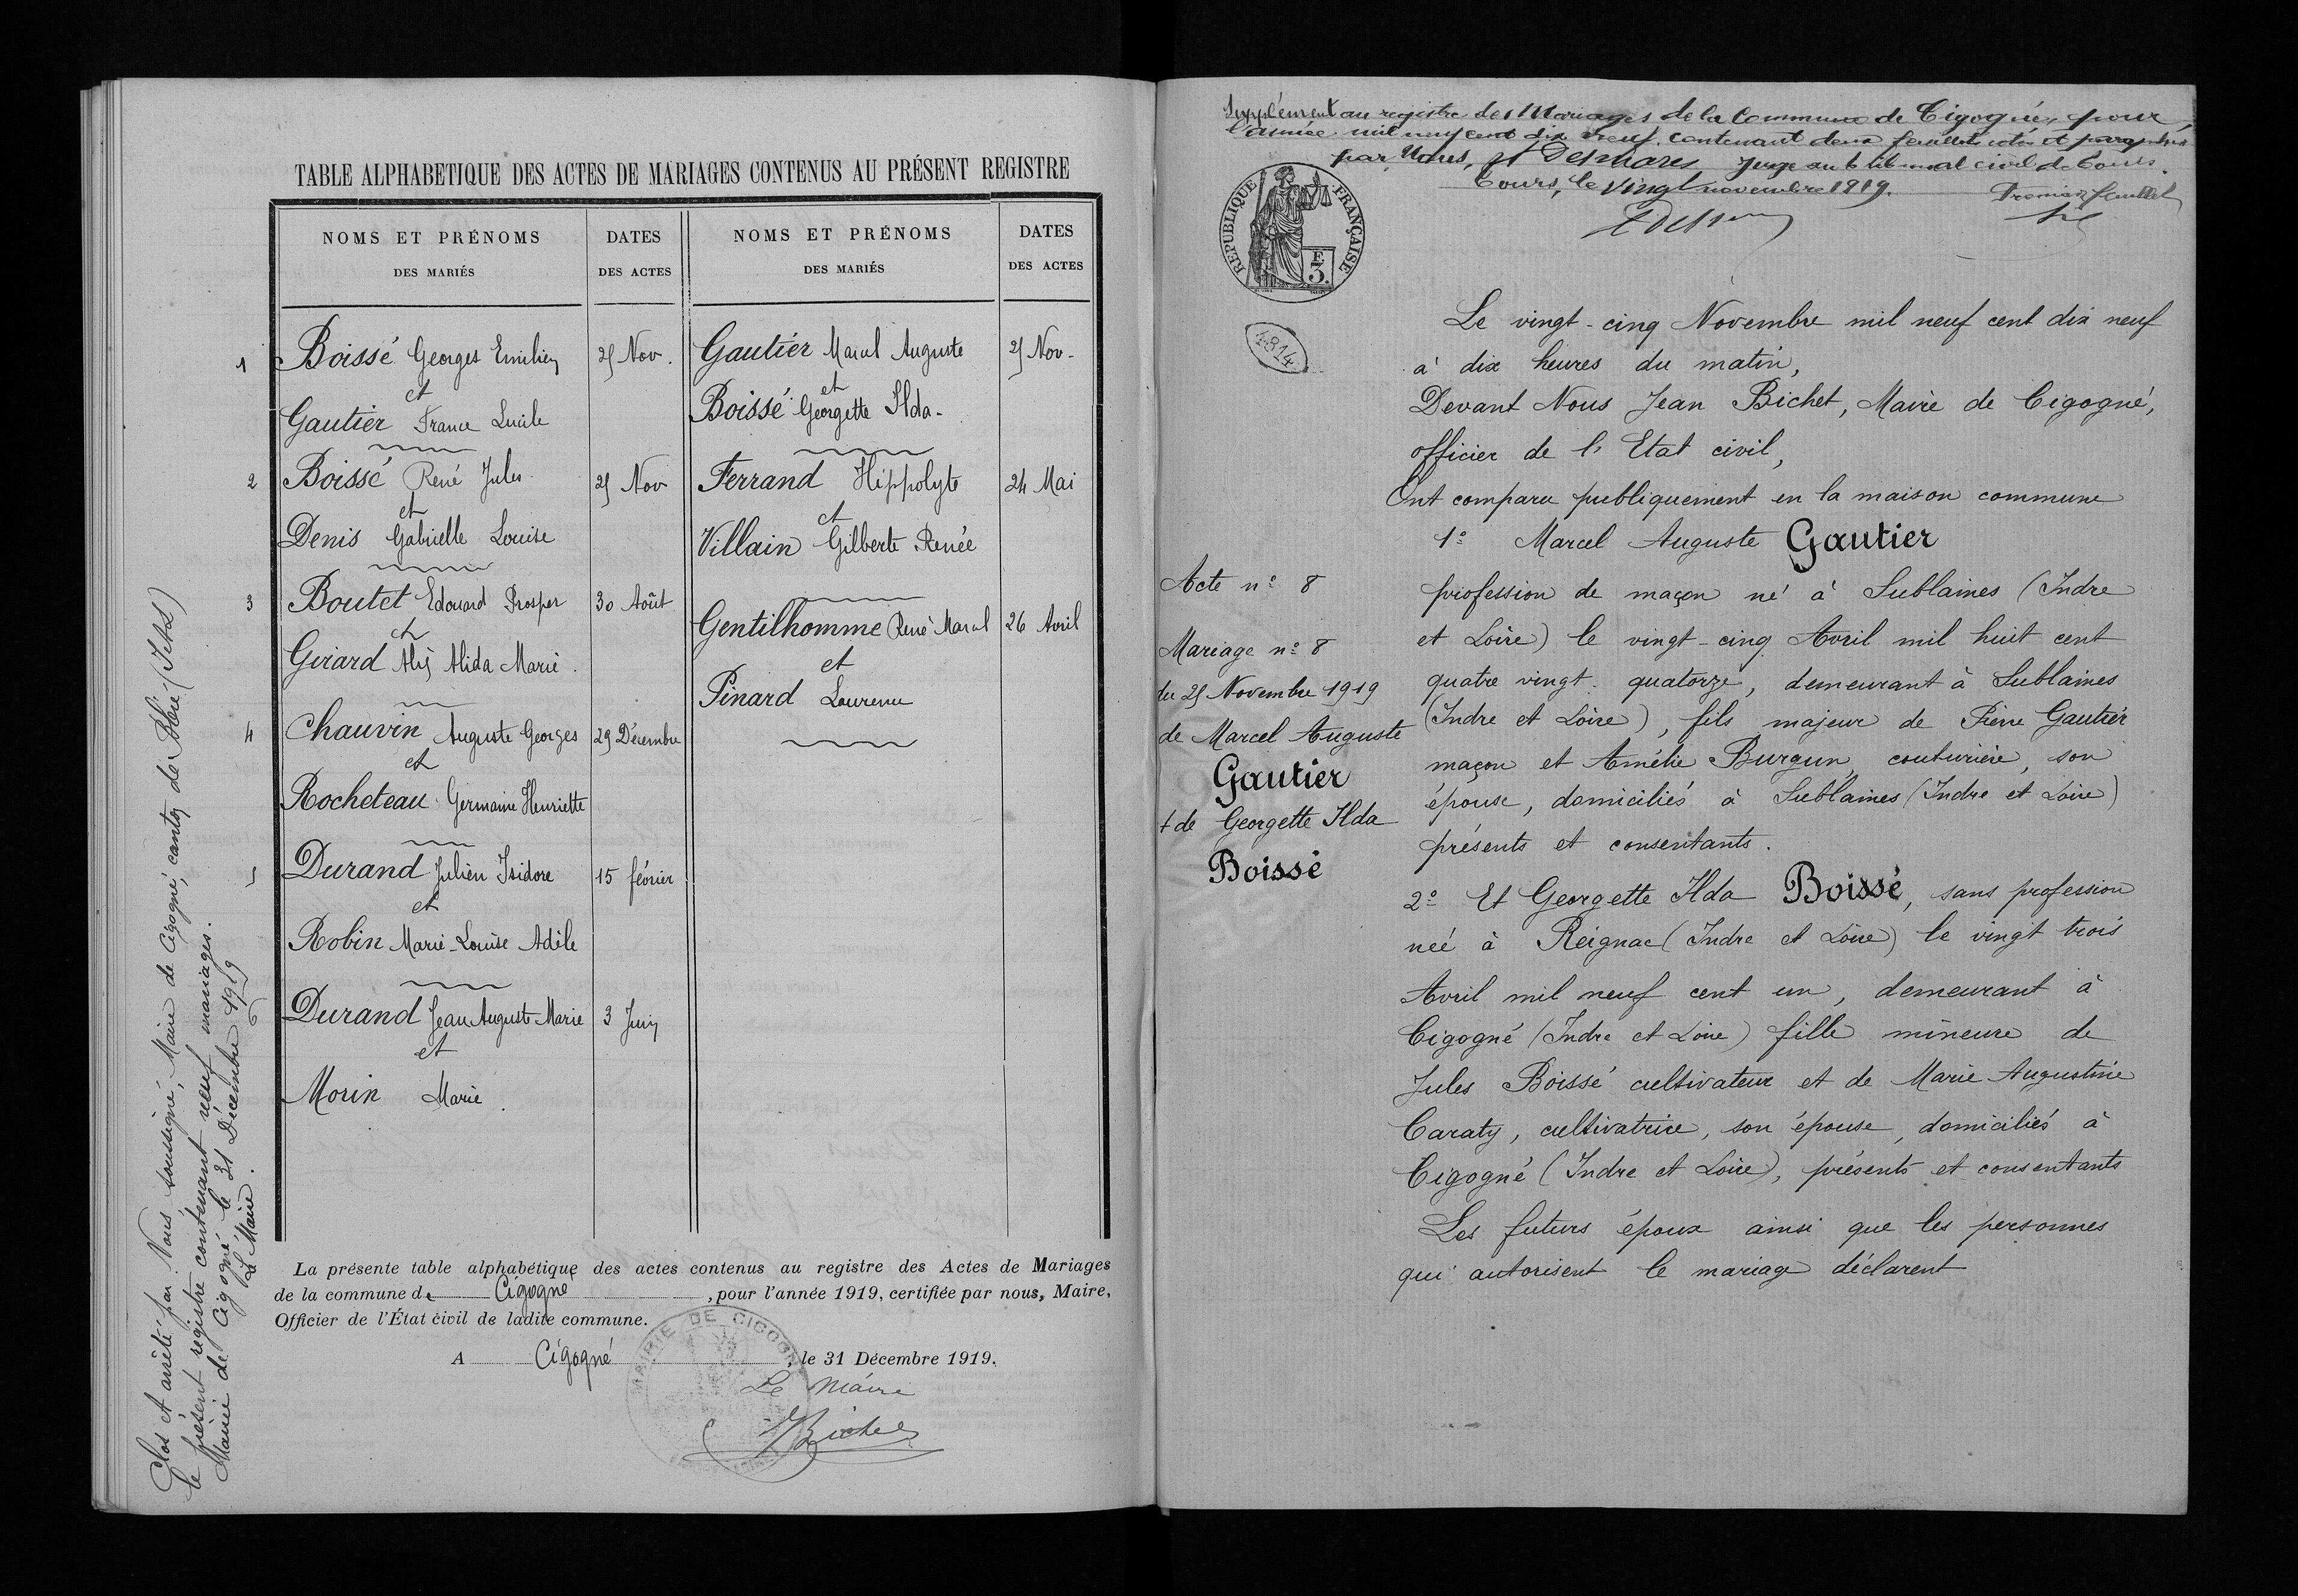 TABLE ALPHABETIQUE DES ACTES DE MARIAGES CONTENUS AU PRÉSENT REGISTRE
NOMS ET PRÉNOMS
DES MARIÉS
DATES
DES ACTES
NOMS ET PRÉNOMS
DES MARIÉS
DATES
DES ACTES
1 Boissé Georges Emilien 25 Nov.
et
Gautier France Lucile
2 Boissé René Jules 25 Nov
et
Denis Gabrielle Louise
3 Boutet Edouard Prosper 30 Août
et
Girard Alida Marie.
4 Chauvin Auguste Georges 29 Décembre
et
Rocheteau Germaine Henriette
5 Durand Julien Isidore 15 février
et
Robin Marie-Louise Adèle
Durand Jean Auguste Marie 3 Juin
et
Morin Marie.
Gautier Marcel Auguste 25 Nov-
et
Boissé Georgette Ilda-
Ferrand Hippolyte 24 Mai
et
Villain Gilberte Renée
Gentilhomme René Marcel 26 Avril
et
Pinard Laurence
La présente table alphabétique des actes contenus au registre des Actes de Mariages
de la commune de Cigogné, pour l'année 1919, certifiée par nous, Maire,
Officier de l'État civil de ladite commune.
A Cigogné, le 31 Décembre 1919.
Le Maire
JBichet
MAIRIE DE CIGOGNÉ
Clos et arrêté par Nous soussigné, Maire de Cigogné, canton de Bléré (I et L)
le présent registre contenant neuf mariages.
Mairie de Cigogné le 31 Décembre 1919
Le Maire.
Supplément au registre des Mariages de la Commune de Cigogné, pour
l'année mil neuf cent dix neuf, contenant deux feuillets cotés et paraphés
par Nous, Juge au tribunal civil de Tours.
Tours, le vingt novembre 1919.
Premier feuillet
REPUBLIQUE FRANÇAISE
E
3.
4814
Le vingt-cinq Novembre mil neuf cent dix neuf
à dix heures du matin,
Devant Nous Jean Bichet, Maire de Cigogné,
officier de l'Etat civil,
Ont comparu publiquement en la maison commune
1º Marcel Auguste Gautier
profession de maçon né à Sublaines (Indre
et Loire) le vingt-cinq Avril mil huit cent
quatre vingt quatorze, demeurant à Sublaines
(Indre et Loire), fils majeur de Pierre Gautier
maçon et Amélie Burgun, couturière, son
épouse, domiciliés à Sublaines (Indre et Loire)
présents et consentants.
2º Et Georgette Ilda Boissé, sans profession
née à Reignac (Indre et Loire) le vingt trois
Avril mil neuf cent un, demeurant à
Cigogné (Indre et Loire) fille mineure de
Jules Boissé cultivateur et de Marie Augustine
Caraty, cultivatrice, son épouse, domiciliés à
Cigogné (Indre et Loire), présents et consentants
Les futurs époux ainsi que les personnes
qui autorisent le mariage déclarent
Acte nº 8
Mariage nº 8
du 25 Novembre 1919
de Marcel Auguste
Gautier
+ de Georgette Ilda
Boissé